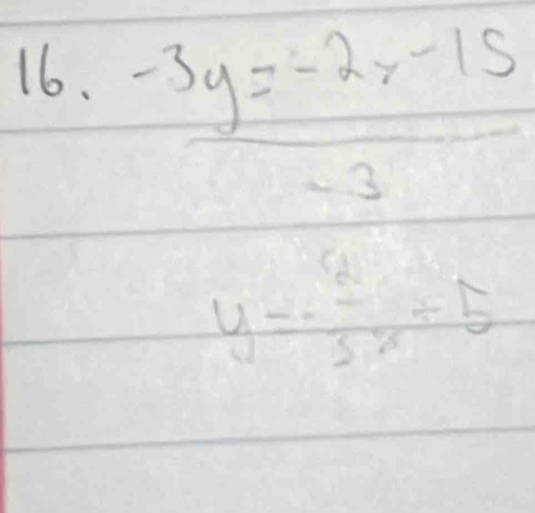 16. -3y = -2x -15
-3
y = -2/3 x + 5